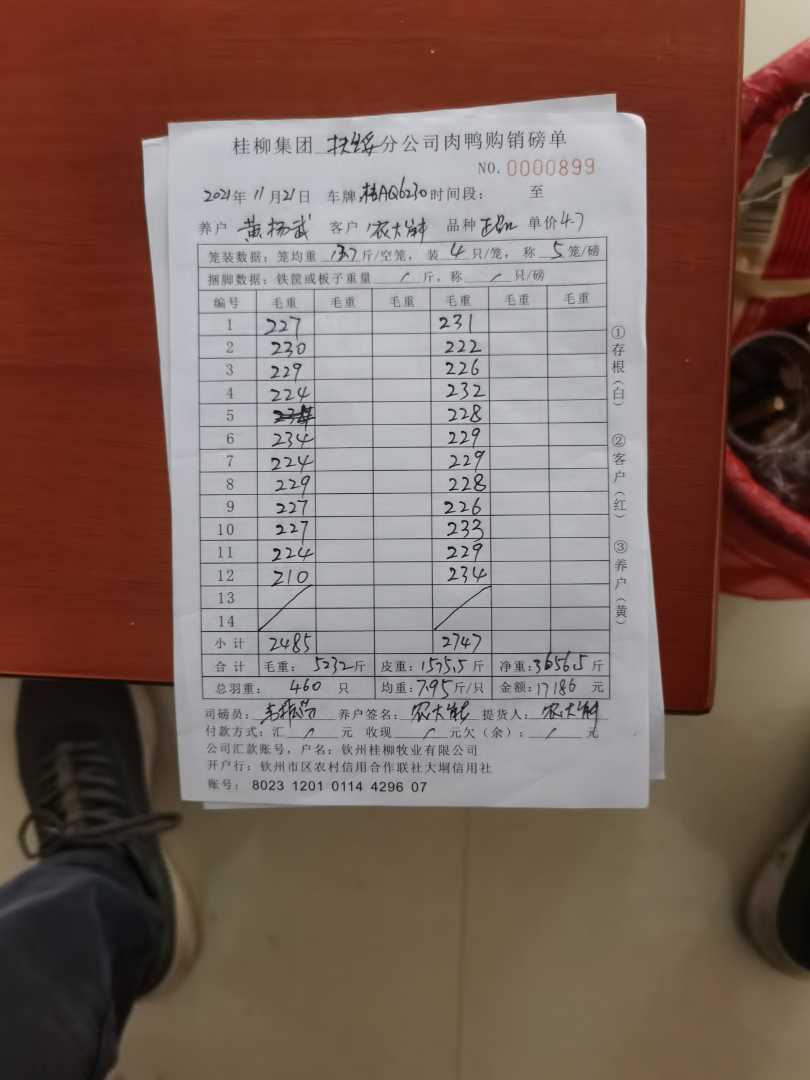 桂柳集团 扶绥 分公司肉鸭购销磅单
NO. 0000899
2021年 11月21日 车牌:桂AQ6230 时间段: 至
养户 黄杨武 客户 农大 品种 正品 单价 4.7
笼装数据:笼均重 13.7 斤/空笼, 装 4 只/笼, 称 5 笼/磅
捆脚数据:铁筐或板子重量 / 斤, 称 / 只/磅
编号 毛重 毛重 毛重 毛重 毛重 毛重
1 227 231
2 230 222
3 229 226
4 224 232
5 228
6 234 229
7 224 229
8 229 228
9 227 226
10 227 233
11 224 229
12 210 234
13
14
小计 2485 2747
合计 毛重: 5232斤 皮重:1575.5斤 净重:3656.5斤
总羽重: 460 只 均重:7.95斤/只 金额:17186 元
司磅员: 养户签名: 农大 提货人: 农大
付款方式:汇 / 元 收现 / 元欠(余): / 元
公司汇款账号, 户名: 钦州桂柳牧业有限公司
开户行: 钦州市区农村信用合作联社大垌信用社
账号: 8023 1201 0114 4296 07
①存根(白) ②客户(红) ③养户(黄)